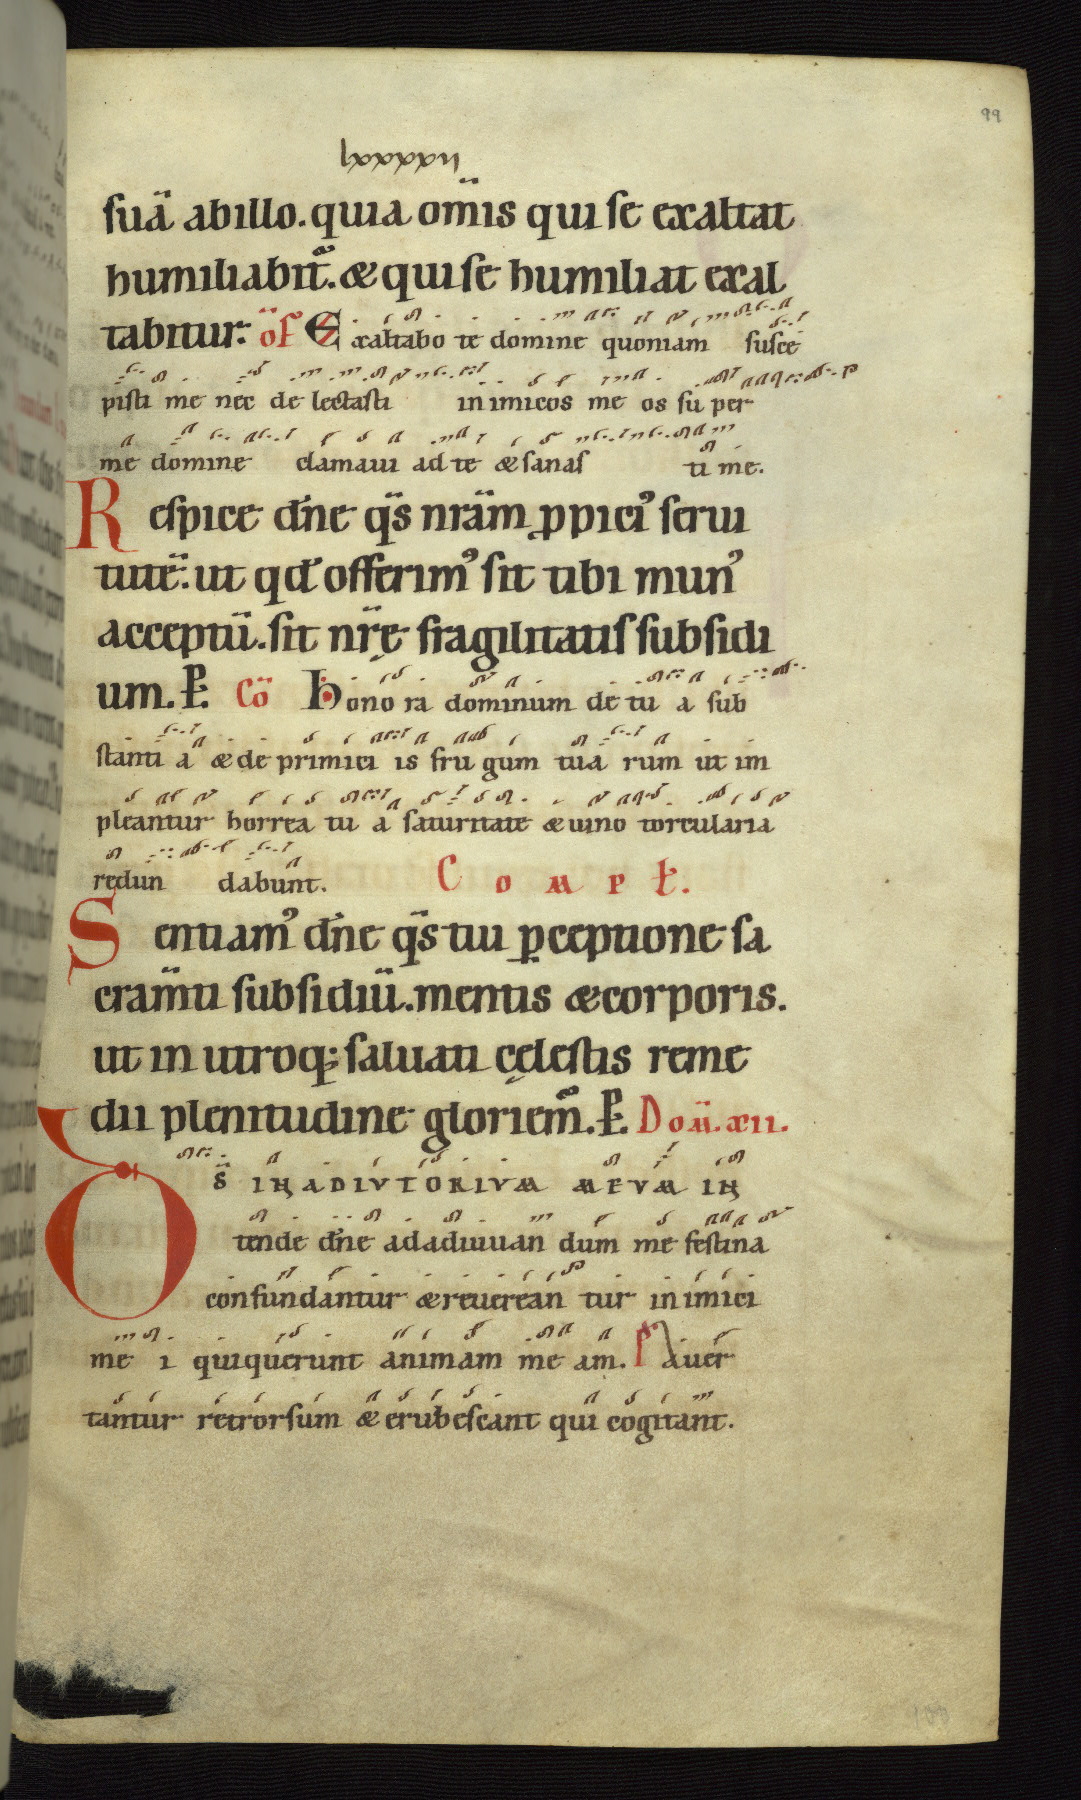 99
lxxxxvii
suā abillo. quia om̄is qui se exaltat
humiliabit᷒. & qui se humiliat exal
tabitur. of̄ Exaltabo te domine quoniam susce
pisti me nec delectasti inimicos me os super
me domine clamaui ad te & sanas ti me.
Respice dn̄e qs̄ nrām ꝓpici᷒ serui
tutē. ut qd̄ offerim᷒ sit tibi mun᷒
acceptū. sit nr̄ę fragilitatis subsidi
um. P̄. Cō Honora dominum de tu a sub
stanti a & de primici is fru gum tua rum ut im
pleantur horrea tu a saturitate & uino torcularia
redun dabunt. Compł.
Sentiam᷒ dn̄e qs̄ tui ꝑceptione sa
cram̄ti subsidiū. mentis & corporis.
ut in utroq; saluati cęlestis reme
dii plenitudine gloriem᷒. P̄. Dom̄. xii.
Ds̄ IN ADIVTORIVM MEVM IN
tende dn̄e ad adiuuan dum me festina
confundantur & reuerean tur inimici
me i qui querunt animam me am. ps Auer
tantur retrorsum & erubescant qui cogitant.
100